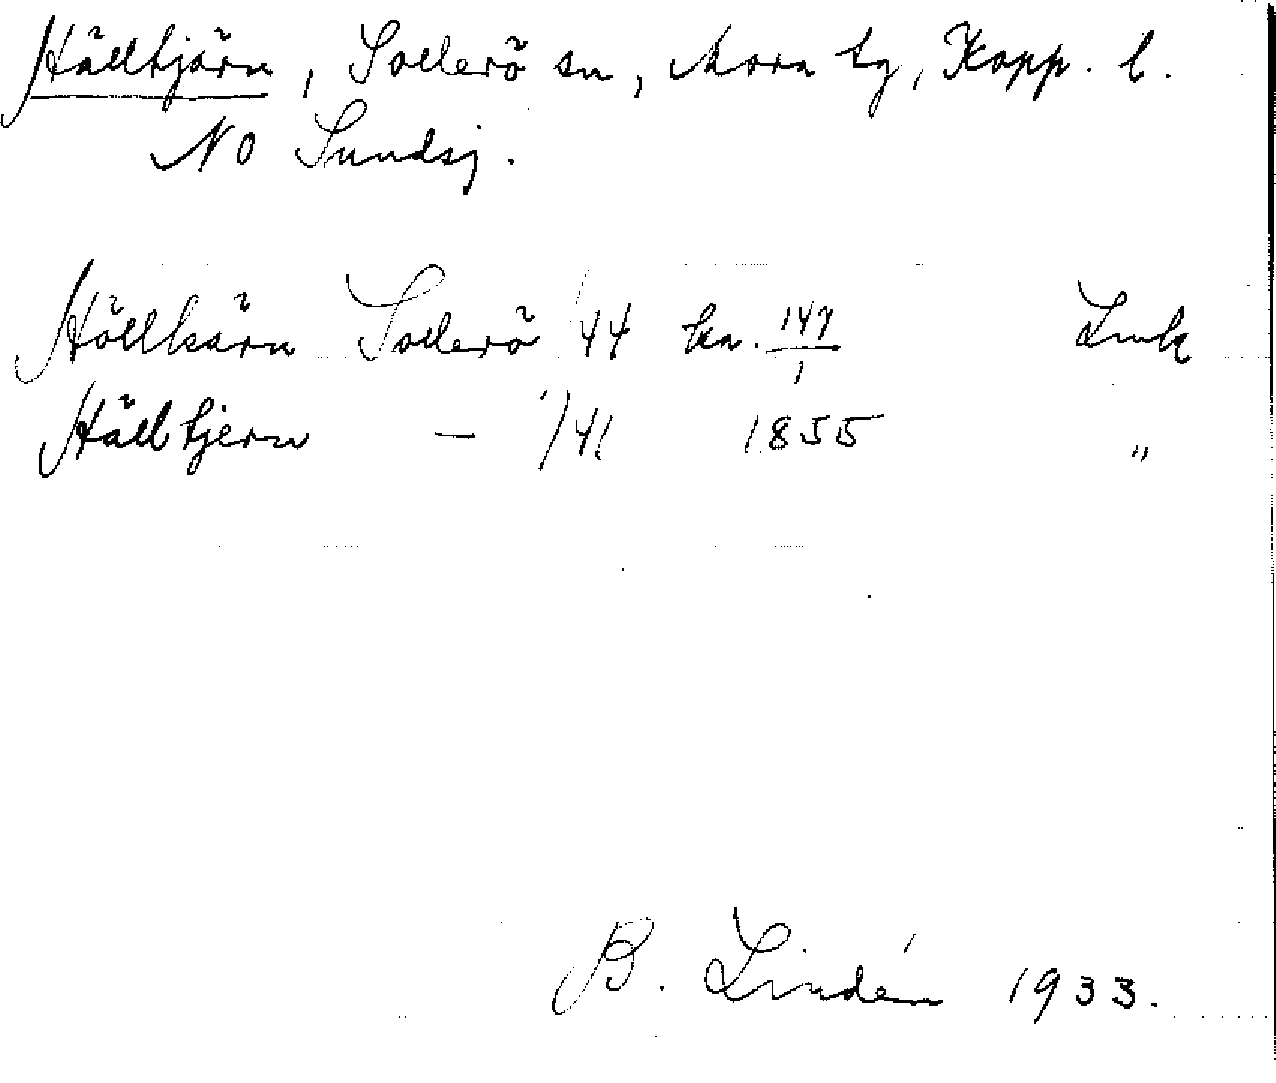 Hälltjärn, Sollerö sn, Mora tg, Kopp. l.
NO Sundsj.
Höllkärn Sollerö 44 ka. 147/1 Lmk
Hälltjern — 1/41 1855 "
B. Lindén 1933.